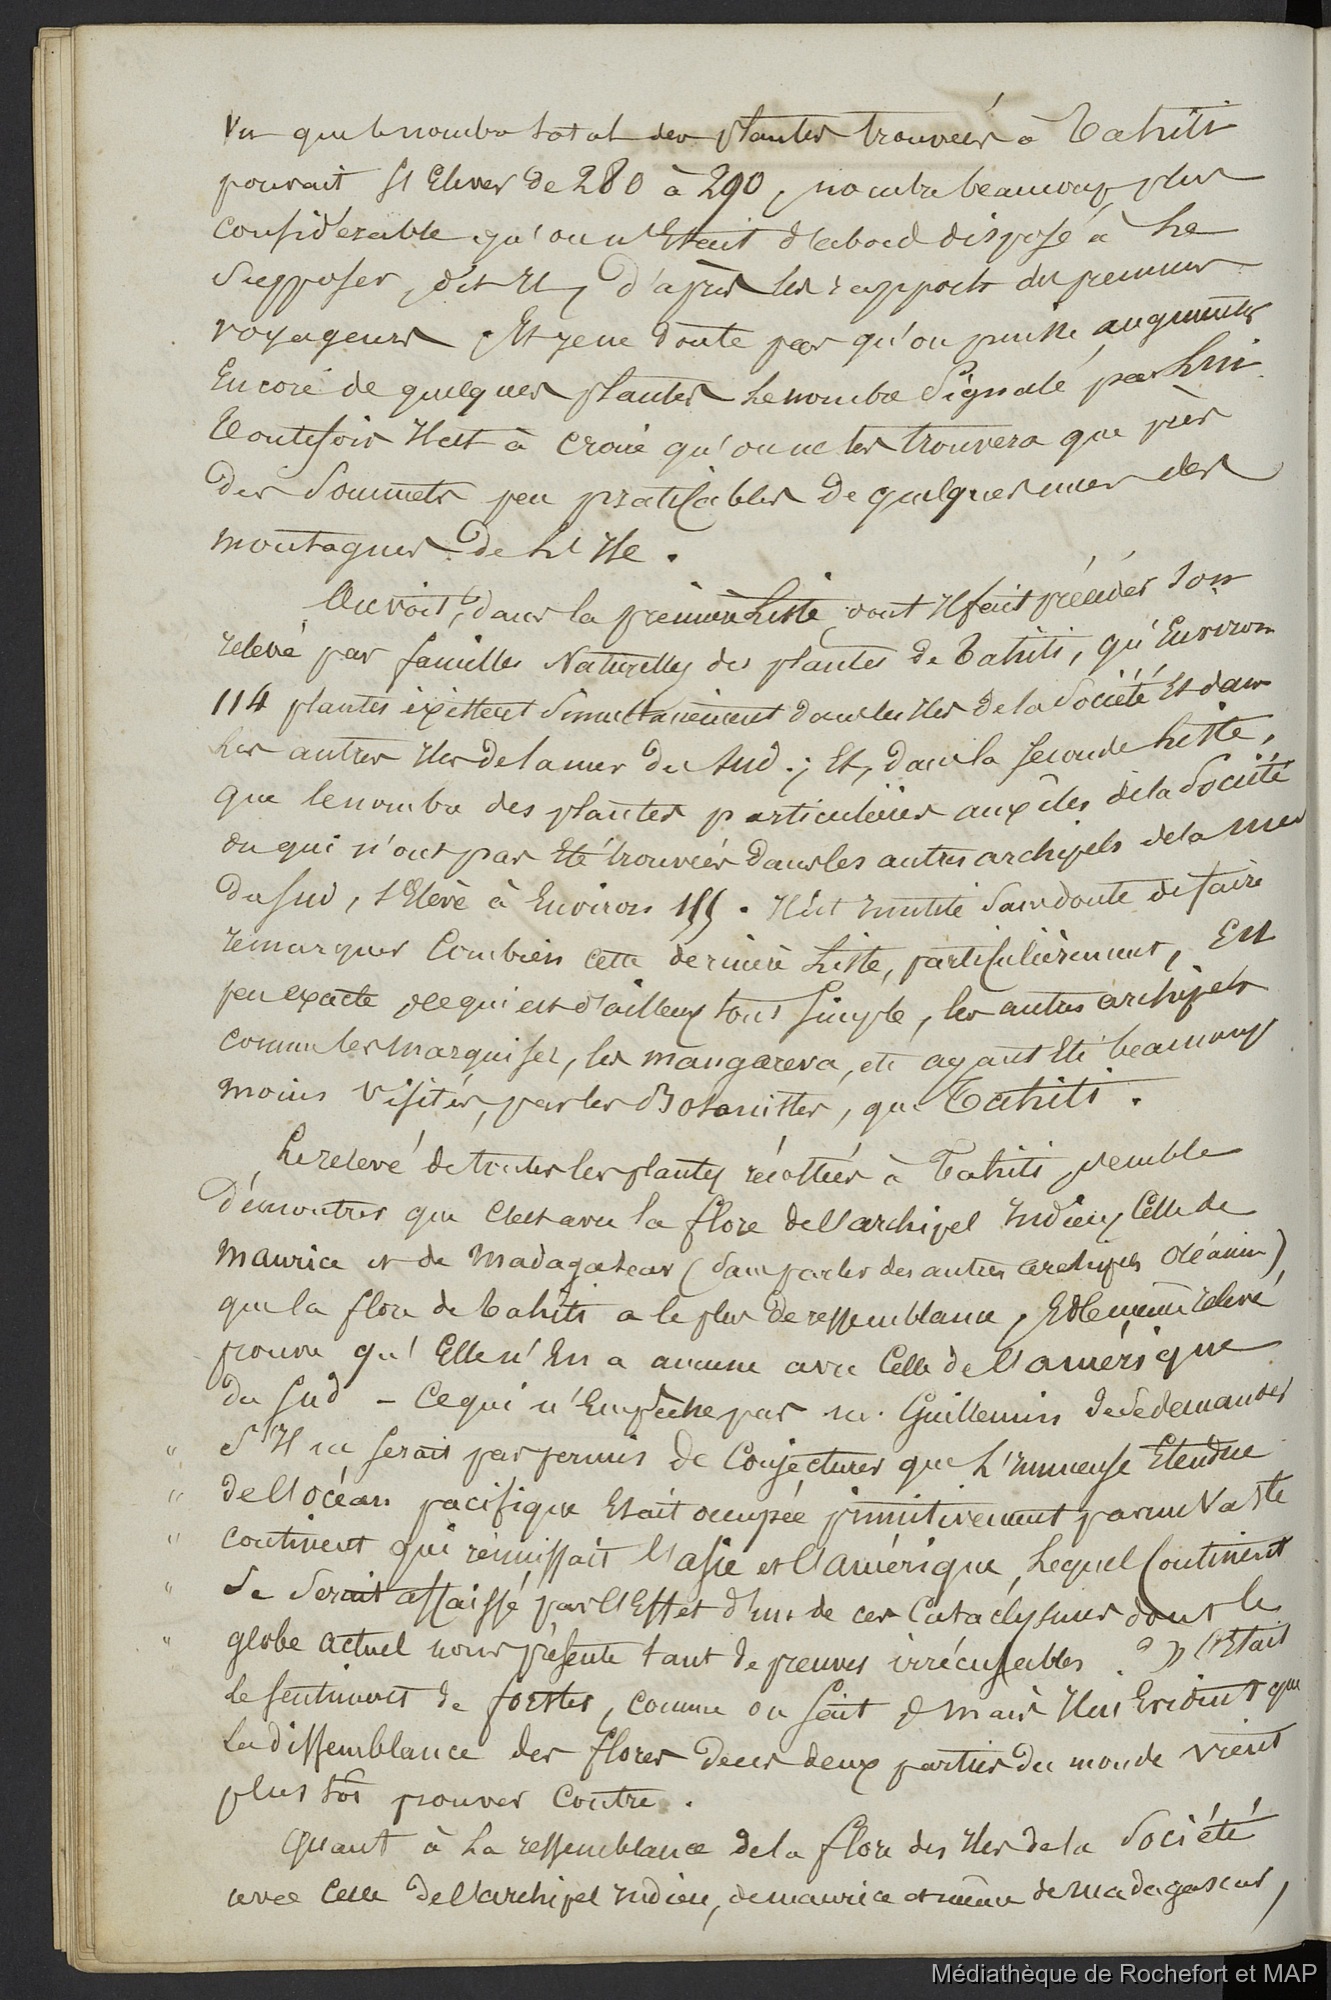 Vu que le nombre total des plantes trouvées à Tahiti
pouvait s'Elever de 280 à 290, nombre beaucoup plus
considerable qu'on n'Etait d'abord disposé à Le
Supposer, dit-Il, d'après les rapports des premiers
voyageurs. Et je ne doute pas qu'on puisse augmenter
Encore de quelques plantes Le nombre Signalé par Lui
Toutefois Il est à croire qu'on ne les trouvera que près
des Sommets peu praticables de quelques unes des
montagnes de L'Ile.
On voit, dans la première Liste dont Il fait précéder Son
relevé par familles Naturelles des plantes de Tahiti, qu'Environ
114 plantes existent Simultanément dans les Iles de la Société Et dans
Les autres Iles de la mer du Sud ; Et, dans la Seconde Liste,
que le nombre des plantes particulières aux îles de la Société
ou qui n'ont pas Eté trouvées dans les autres archipels de la mer
du Sud, s'Elève à Environ 155. Il est Inutile Sans doute de faire
remarquer Combien cette dernière Liste, particulièrement, Est
peu exacte, ce qui est d'ailleurs tout Simple, les autres archipels
comme les marquises, les mangareva, etc ayant Eté beaucoup
moins visités, par les Botanistes, que Tahiti.
Le relevé de toutes les plantes récoltées à Tahiti semble
Démontrer que C'est avec la flore de l'archipel Indien, Celle de
Maurice et de Madagascar (Sans parler des autres archipels Océaniens),
que la flore de Tahiti a le plus de ressemblance, Et Le même relevé
prouve qu'Elle n'En a aucune avec Celle de l'amérique
du Sud - Ce qui n'Empêche pas m. Guillemin de se demander
" S'Il ne serait pas permis de Conjecturer que L'Immense Etendue
" de l'océan pacifique Etait occupée primitivement par un Vaste
" continent qui réunissait l'asie et l'amérique, Lequel Continent
" Se Serait affaissé par l'Effet d'un de ces Cataclysmes dont le
" globe actuel nous présente tant de preuves irrécusables. ? » C'Etait
Le sentiment de forster, comme on sait ; mais Il est Evident que
La dissemblance des flores de ces deux parties du monde vient
plus tôt prouver Contre.
Quant à La ressemblance de la flore des Iles de la Société
avec Celle de l'archipel Indien, de maurice et même de Madagascar,
Médiathèque de Rochefort et MAP